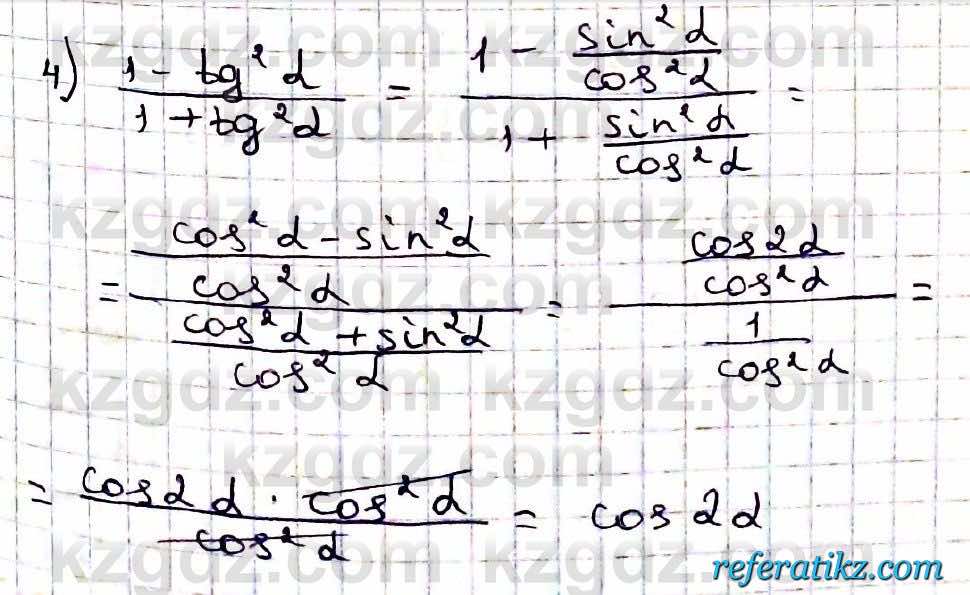 4) (1 - tg²α)/(1 + tg²α) = (1 - sin²α/cos²α)/(1 + sin²α/cos²α) =
= ((cos²α - sin²α)/cos²α)/((cos²α + sin²α)/cos²α) = (cos2α/cos²α)/(1/cos²α) =
= (cos2α · cos²α)/cos²α = cos2α
kzgdz.com
referatikz.com